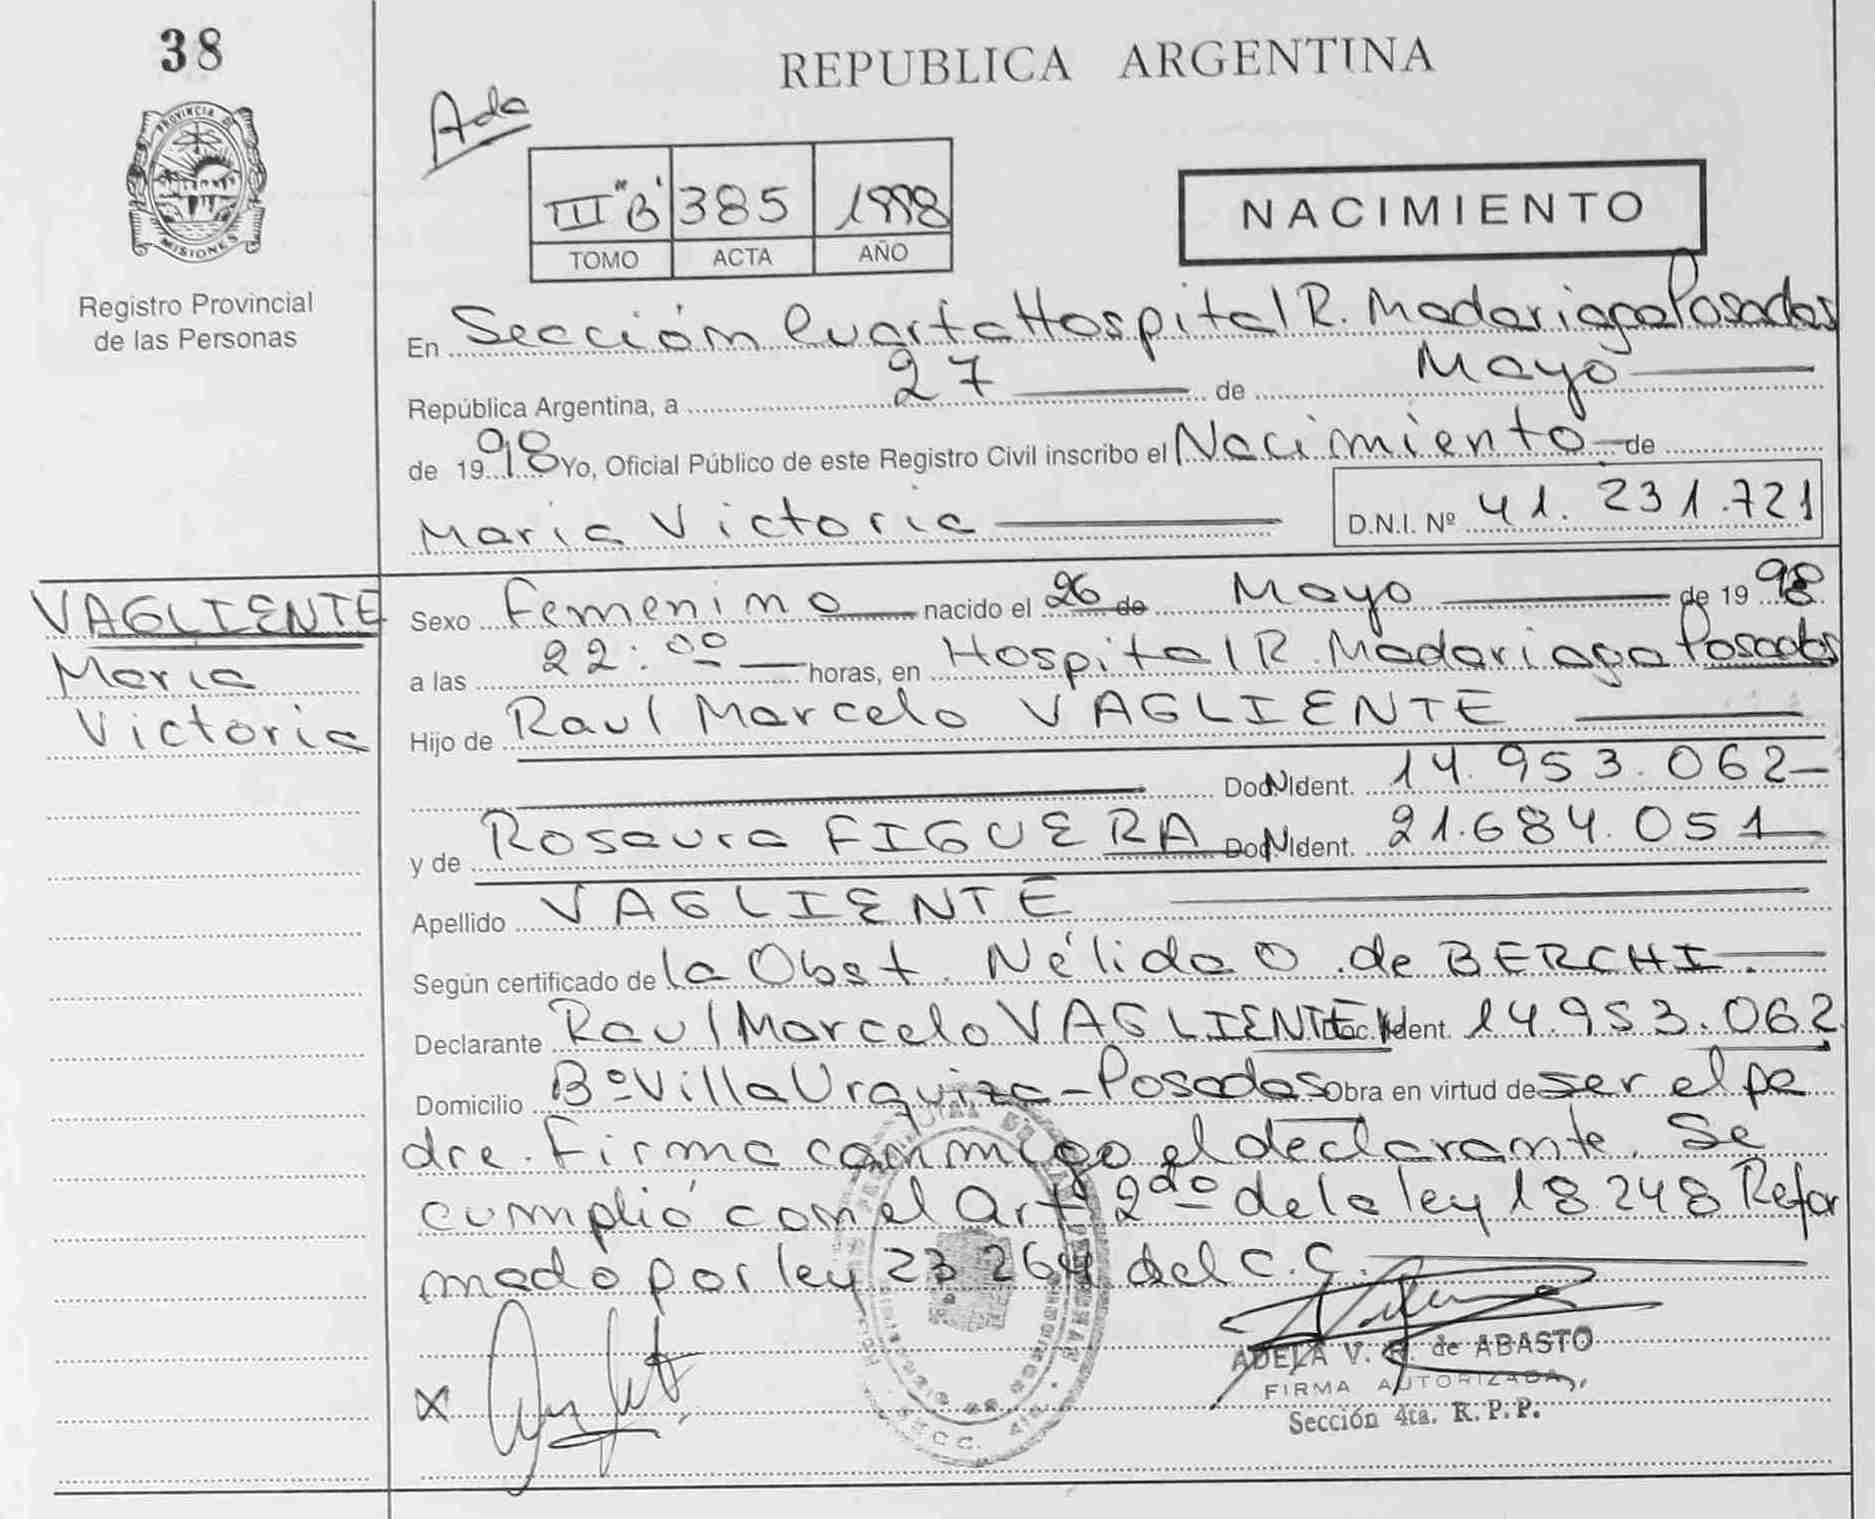 38
PROVINCIA DE
MISIONES
Registro Provincial
de las Personas
REPUBLICA ARGENTINA
Ada
III "B" 385 1998
TOMO ACTA AÑO
NACIMIENTO
En Sección Cuarta Hospital R. Madariaga Posadas
República Argentina, a 27 de Mayo
de 1998 Yo, Oficial Público de este Registro Civil inscribo el Nacimiento de
Maria Victoria D.N.I. Nº 41.231.721
VAGLIENTE
Maria
Victoria
Sexo Femenino nacido el 26 de Mayo de 1998
a las 22:00 horas, en Hospital R. Madariaga Posadas
Hijo de Raul Marcelo VAGLIENTE
Doc. N Ident. 14.953.062
y de Rosaura FIGUERA Doc. N Ident. 21.684.051
Apellido VAGLIENTE
Según certificado de la Obst. Nélida O. de BERCHI.
Declarante Raul Marcelo VAGLIENTE Doc. N Ident. 14.953.062
Domicilio Bº Villa Urquiza - Posadas Obra en virtud de ser el pa
dre. Firma conmigo el declarante. Se
cumplió con el Art 2do de la ley 18.248 Refor
mado por ley 23 264 del C.C.
ADELA V. de ABASTO
FIRMA AUTORIZADA
Sección 4ta. R.P.P.
X